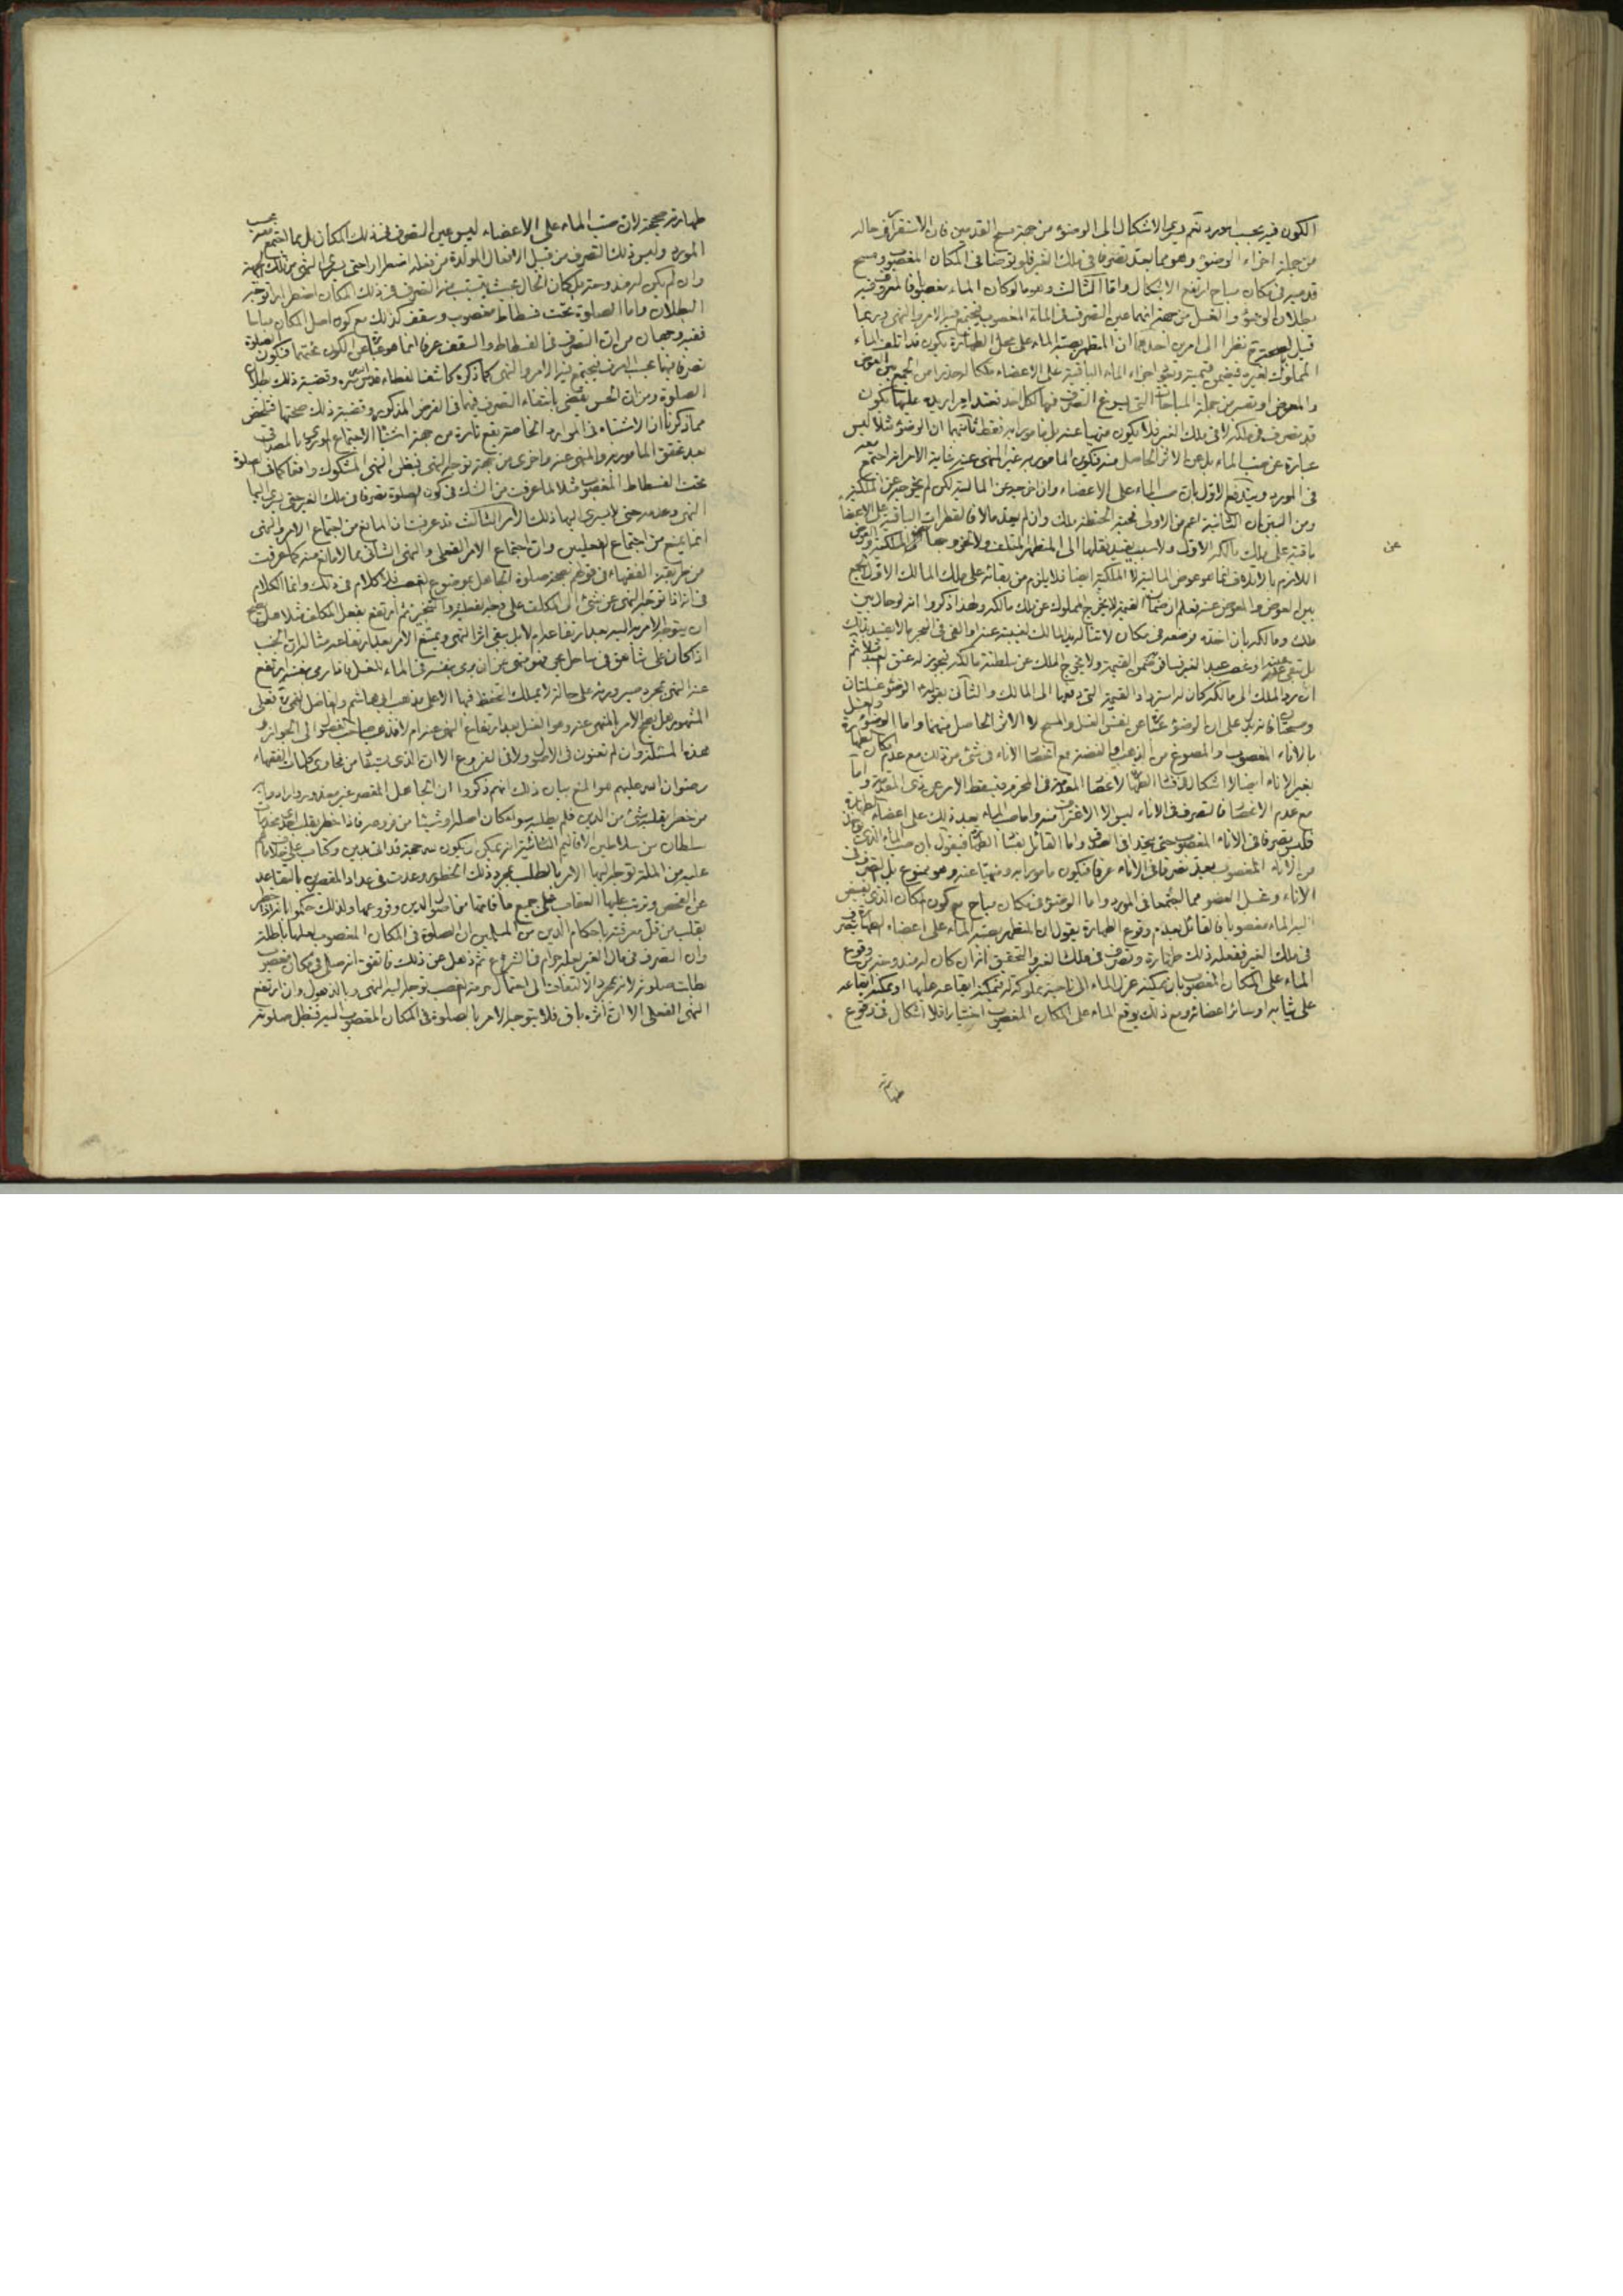 الكون فيه بحسب المورد ثم يسرى الاشكال الى الوضوء من جهة مسح القدمين فان الاستقرار في حاله
من جملة اجزاء الوضوء وهو مما يعد تصرفا في ملك الغير فلو توضأ في المكان المغصوب ومسح
قدميه في مكان مباح ارتفع الاشكال واما الثالث وهو ما لو كان الماء مغصوبا فالمعروف فيه
بطلان الوضوء والغسل من جهة انهما عين التصرف في الماء المغصوب فيجتمع فيه الامر والنهى وربما
قيل بصحته نظرا الى امرين احدهما ان المتطهر بصبه الماء على محل الطهارة يكون قد اتلف الماء
المملوك لغيره فيضمن قيمته وتبقى اجزاء الماء الباقية على الاعضاء ملكا له حذرا من الجمع بين العوض
والمعوض او تصير من جملة المباحات التى يسوغ التصرف فيها لكل احد فعند امرار يده عليها يكون
قد تصرف في ملكه لا في ملك الغير فلا يكون منهيا عنه بل مأمورا به فقط ثانيهما ان الوضوء مثلا ليس
عبارة عن صب الماء بل عن الاثر الحاصل منه فيكون المأمور به غير المنهى عنه غاية الامر انه اجتمع معه
في المورد ويندفع الاول بان صب الماء على الاعضاء وان اخرجه عن المالية لكن لم يخرجه عن الملكية
ومن البين ان الثانية اعم من الاولى فحبة الحنطة ملك وان لم يعد مالا فالقطرات الباقية على الاعضاء
باقية على ملك مالكه الاول ولا سبب يفيد نقلها الى المتطهر المتلف
عن
اللازم بالاتلاف انما هو عوض المالية لا الملكية ايضا فلا يلزم من بقائه على ملك المالك الاول الجمع
بين العوض والمعوض عنه فعلم ان ضمان القيمة لا يخرج المملوك عن ملك مالكه ولهذا ذكروا انه لو حال بين
ملك ومالكه بان اخذه فوضعه في مكان لا تناله يد المالك لغيبته عنه او القى في البحر مالا يفيد ذلك
ان يرد الملك الى مالكه كان له استرداد القيمة التى دفعها الى المالك والثانى بقوله الوضوء غسلتان
ومسحتان فانه يدل على ان الوضوء عبارة عن نفس الغسل والمسح لا الاثر الحاصل منهما واما الوضوء
بالاناء المغصوب والمصوغ من الذهب او الفضة مع انحصار الاناء في شئ من ذلك مع عدم امكان
مع عدم الانحصار فالتصرف في الاناء ليس الا الاغتراف منه واما صب الماء بعد ذلك على اعضاء الطهارة
من الاناء المغصوب يعد تصرفا في الاناء عرفا فيكون مأمورا به ومنهيا عنه وهو ممنوع بل التصرف في
الاناء وغسل العضو مما اجتمعا في المورد واما الوضوء في مكان مباح مع كون المكان الذى يفيض
اليه الماء مغصوبا فالقائل بعدم وقوع الطهارة يقول ان المتطهر بصبه الماء على اعضاء الطهارة يتصرف
في ملك الغير ففعله ذلك طهارة وتصرف في ملك الغير والتحقيق انه ان كان له مندوحة من وقوع
الماء على المكان المغصوب بان يمكنه عزل الماء الى ناحية مملوكة له فيمكنه ايقاعه عليها او يمكنه ايقاعه
على ثيابه او سائر اعضائه ومع ذلك يوقع الماء على المكان المغصوب اختيارا فلا اشكال في وقوع
طهارته
طهارته صحيحة لان صب الماء على الاعضاء ليس عين التصرف في ذلك المكان بل مما اجتمع معه بحسب
المورد وليس ذلك التصرف من قبيل الافعال المولدة من فعله اضطرارا حتى يسرى النهى من تلك الجهة
وان لم يكن له مندوحة بل كان الحال بحيث يترتب منه التصرف في ذلك المكان اضطرارا توجه
البطلان واما الصلوة تحت فسطاط مغصوب وسقف كذلك مع كون اصل المكان مباحا
ففيه وجهان من ان التصرف في الفسطاط والسقف عرفا انما هو عبارة عن الكون تحتهما فيكون الصلوة
تصرفا فيهما بحسب العرف فيجتمع فيه الامر والنهى كما ذكره كاشف الغطاء قدس سره وقضية ذلك بطلان
الصلوة ومن ان الحس يقضى بانتفاء التصرف فيهما في الفرض المذكور وقضية ذلك صحتها فتلخص
مما ذكرنا ان الاشتباه في الموارد الخاصة يقع تارة من جهة اشتباه الاجتماع الموردى بالمصداقى
بعد تحقق المأمور به والمنهى عنه واخرى من جهة توجه النهى
تحت الفسطاط المغصوب مثلا لما عرفت من الشك في كون الصلوة تصرفا في ملك الغير حتى يسرى اليها
النهى وعدمه حتى لا يسرى اليها ذلك الامر الثالث قد عرفت ان المانع من اجتماع الامر والنهى
انما يمنع من اجتماع الفعليين وان اجتماع الامر الفعلى والنهى الشأنى مما لا مانع منه كما عرفت
من طريقة الفقهاء في قولهم بصحة صلوة الجاهل بموضوع الغصب فلا كلام في ذلك وانما الكلام
في انه اذا توجه النهى عن شئ الى المكلف على وجه الفعلية والتنجيز ثم ارتفع بفعل المكلف مثلا هل يصح
ان يتوجه الامر اليه بعد ارتفاعه ام لا بل يبقى اثر النهى ويمتنع الامر بعد ارتفاعه مثاله ان الجنب
اذا كان على شاهق في ساحل بحر فهو منهى عن ان يرمى بنفسه في الماء للغسل فاذا رمى بنفسه ارتفع
عنه النهى بمجرد صيرورته على حالة لا يملك التحفظ فيها الا على مذهب ابى هاشم والفاضل القمى ره فعلى
المشهور هل يصح الامر بالمنهى عنه وهو الغسل بعد ارتفاع النهى عنه ام لا فذهب صاحب الفصول الى الجواز و
هذه المسئلة وان لم تعنون في الاصول ولا في الفروع الا ان الذى يستفاد من فحاوى كلمات الفقهاء
رضوان الله عليهم هو المنع بيان ذلك انهم ذكروا ان الجاهل المقصر غير معذور
من خطر بقلبه شئ من الدين فلم يطلبه سواء كان اصله او شيئا من فروعه فاذا خطر بقلب
سلطان من سلاطين الاقاليم النائية انه يمكن ان يكون لله حجة قد اتى بدين وكتاب
عليه من الملة توجه اليهما الامر بالطلب بمجرد ذلك الخطور وعدت في عداد المقصرين بالتقاعد
عن الفحص وترتب عليها العقاب على جميع ما فاتهما من اصول الدين وفروعها ولذلك حكموا بانه اذا خطر
بقلب من قل معرفته باحكام الدين من المسلمين ان الصلوة في المكان المغصوب لعلها باطلة
وان التصرف في مال الغير لعله حرام في الشرع ثم ذهل عن ذلك فاتفق انه صلى في مكان مغصوب
بطلت صلوته لانه بمجرد الالتفات الى احتمال حرمة الغصب توجه اليه النهى وبالذهول وان ارتفع
النهى الفعلى الا ان اثره باق فلا يتوجه الامر بالصلوة في المكان المغصوب اليه فتبطل صلوته